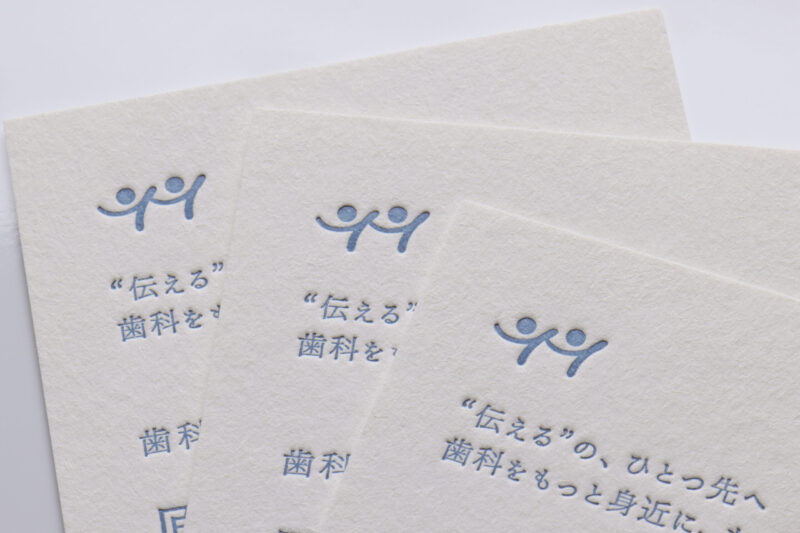 “伝える”
歯科をも
歯科
“伝える”
歯科を
歯科
“伝える”の、ひとつ先へ
歯科をもっと身近に、